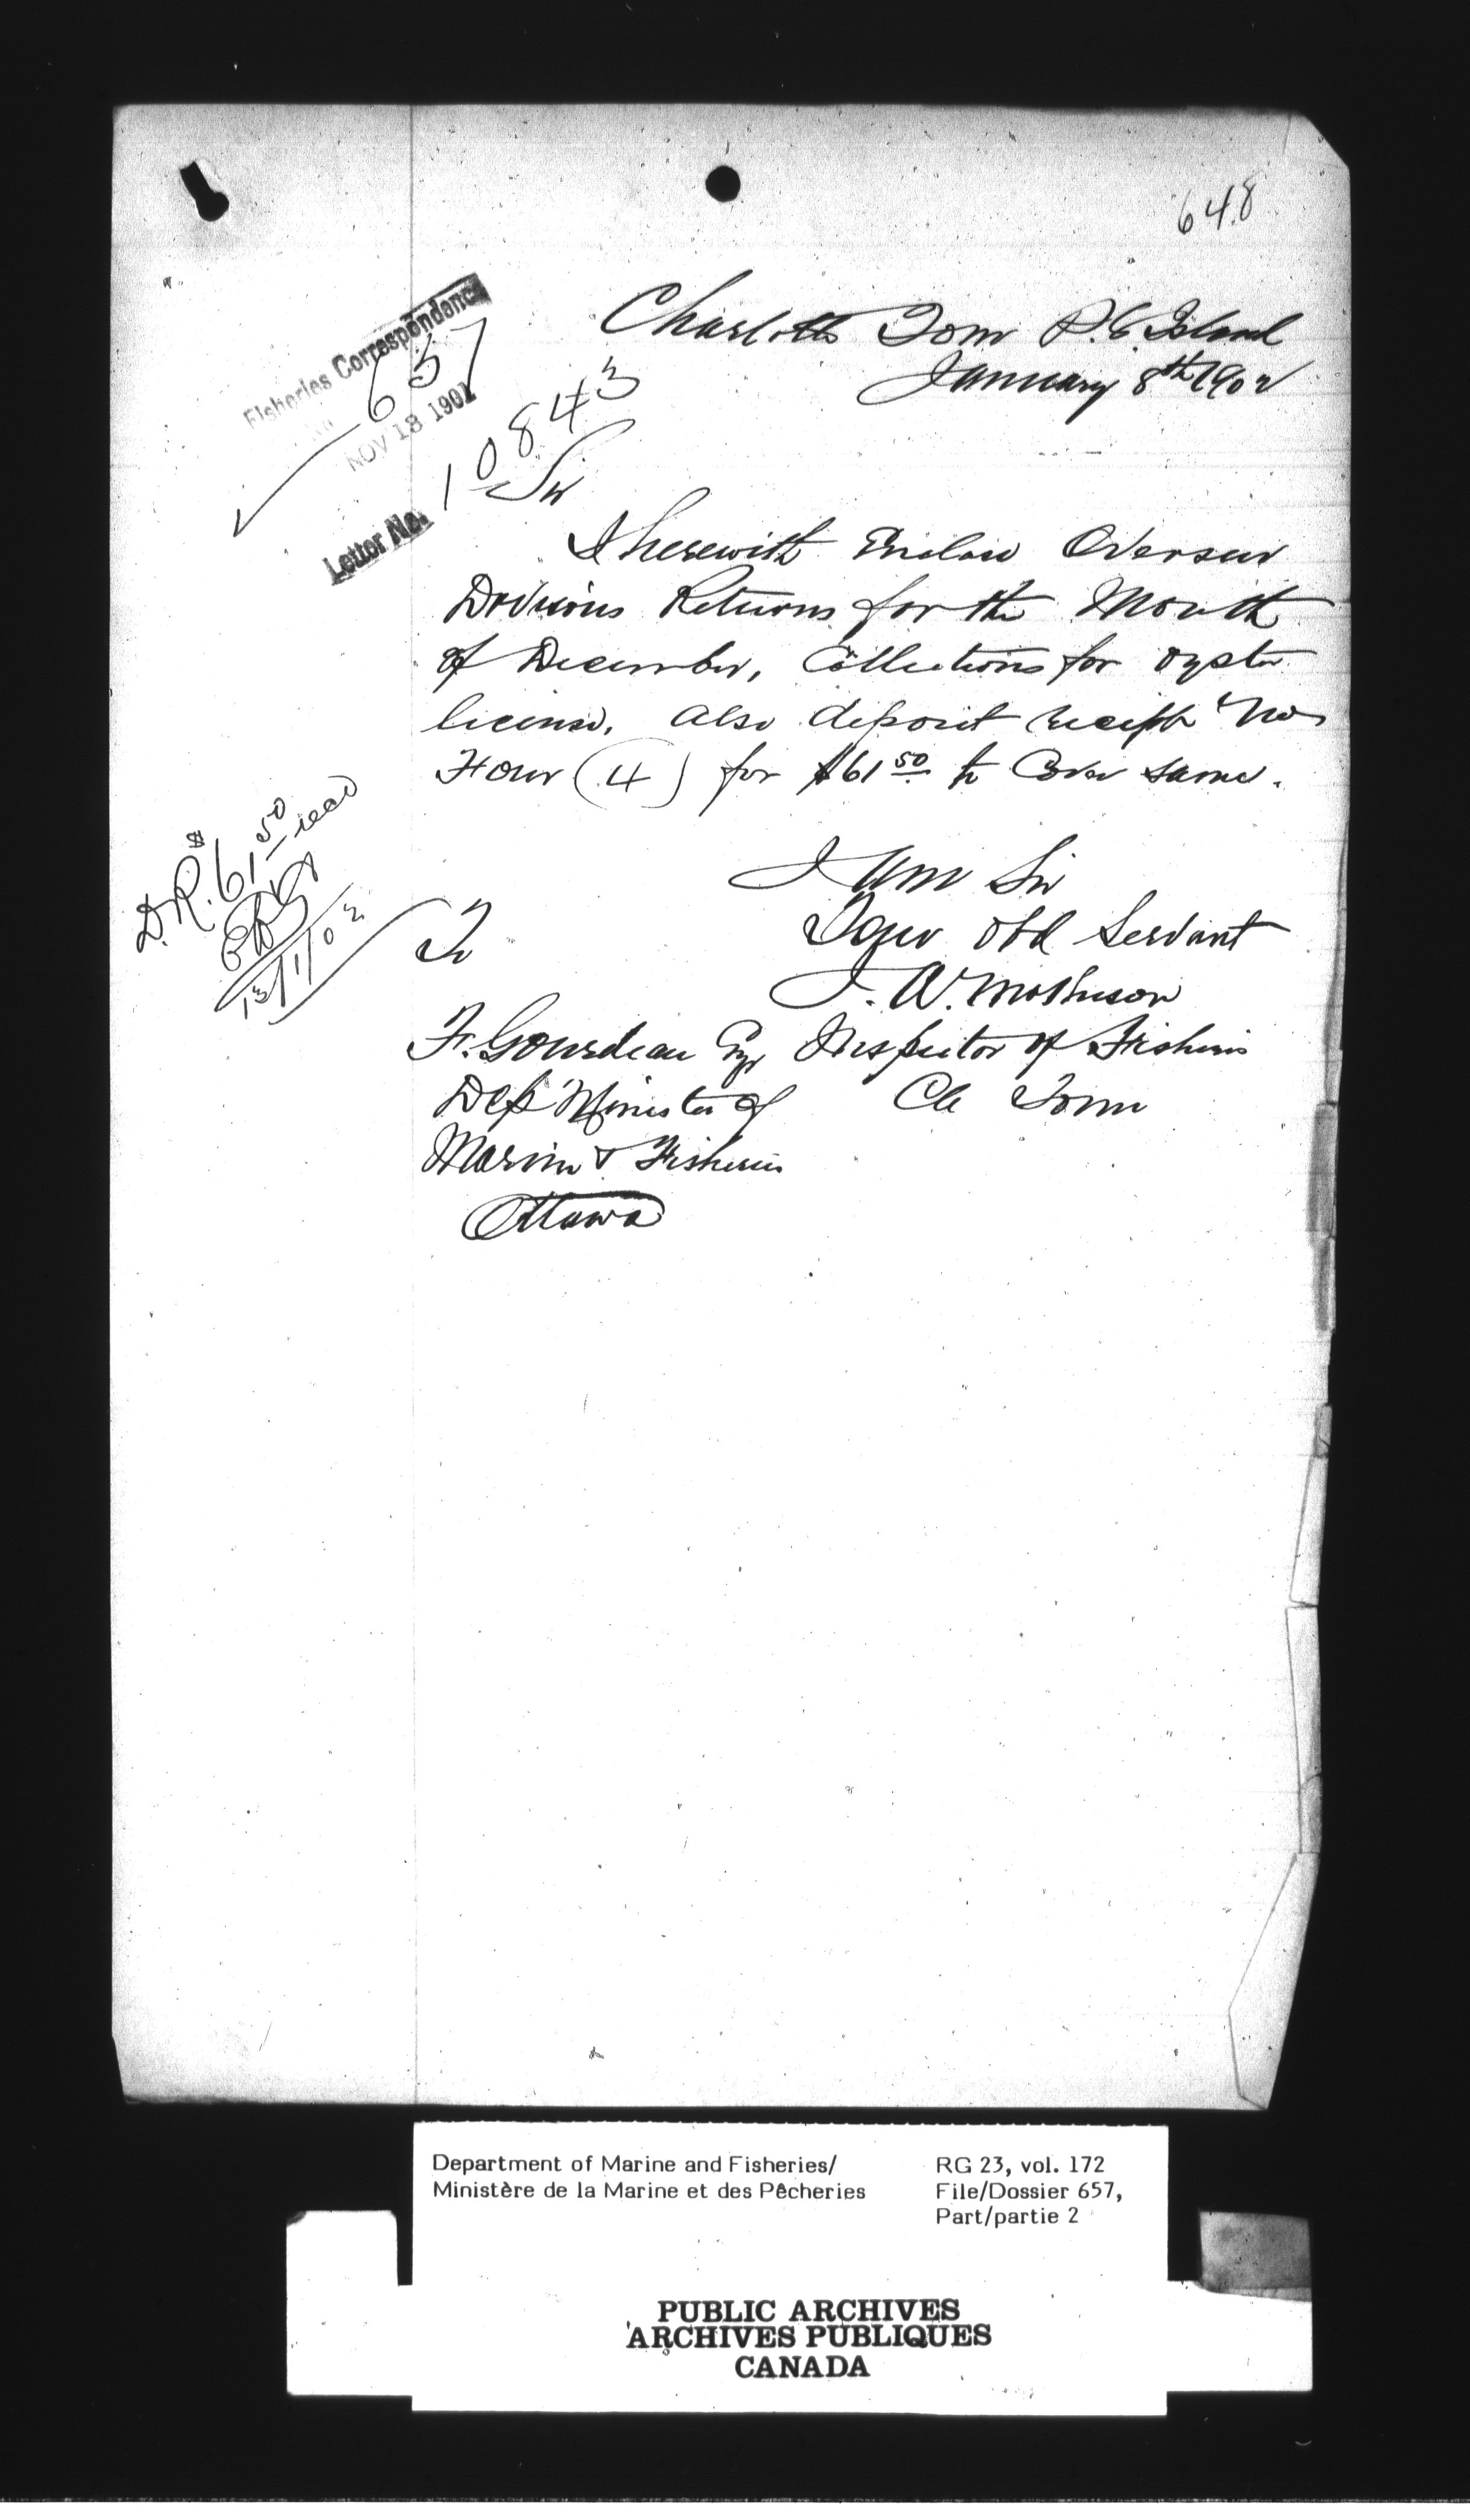 648
Charlotte Town P.E. Island
January 8th 1902
Fisheries Correspondence
No 657
NOV 18 1901
Letter No. 10843
Sir
I herewith Enclose Overseer
Davisons Returns for the Month
of December, Collections for oyster
license. also deposit receipt No
Four (4) for $61 50 to Cover same.
D.R. $61 50 recd
13/1/02
I am Sir
Your obd Servant
J. A. Matheson
Inspector of Fisheries
Ch Town
To
F. Gourdeau Esq
Dep Minister of
Marine & Fisheries
Ottawa
Department of Marine and Fisheries/
Ministère de la Marine et des Pêcheries
RG 23, vol. 172
File/Dossier 657,
Part/partie 2
PUBLIC ARCHIVES
ARCHIVES PUBLIQUES
CANADA